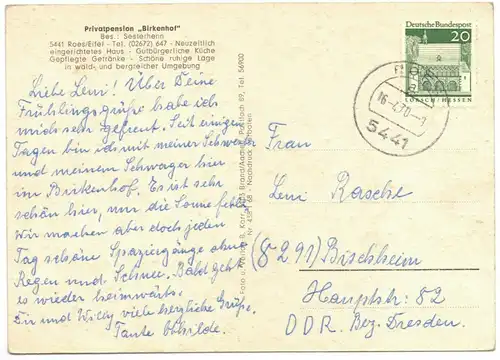 Privatpension „Birkenhof"
Bes.: Sesterhenn
5441 Roes/Eifel - Tel. (02672) 647 - Neuzeitlich
eingerichtetes Haus - Gutbürgerliche Küche
Gepflegte Getränke - Schöne ruhige Lage
in wald- und bergreicher Umgebung
Liebe Leni! Über Deine
Frühlingsgrüße habe ich
mich sehr gefreut. Seit einigen
Tagen bin ich mit meiner Schwester
und meinem Schwager hier
im Birkenhof. Es ist sehr
schön hier, nur die Sonne fehlt.
Wir machen aber doch jeden
Tag schöne Spaziergänge ohne
Regen und Schnee. Bald geht
es wieder heimwärts.
Dir und Willy viele herzliche Grüße.
Tante
Foto u. B. Kerr, Postfach 89, Tel. 56900
Nr. Nachdruck verboten
Deutsche Bundespost
20
LORSCH/HESSEN
16.-4.70-
5441
Frau
Leni Rasche
(8291) Bischheim
Hauptstr. 52
DDR. Bez. Dresden.